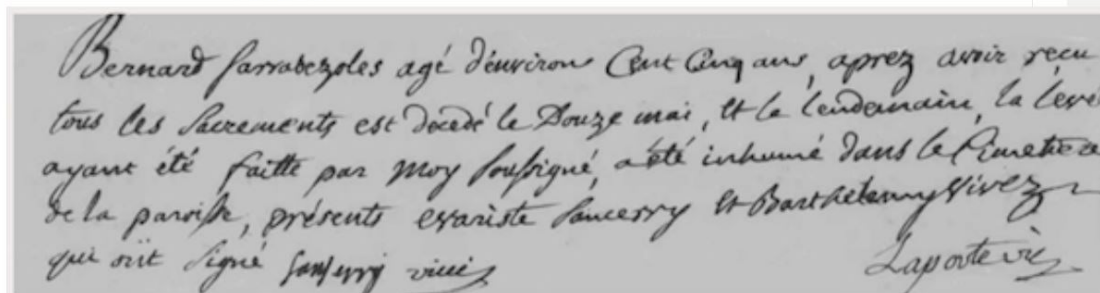 Bernard Sarrabezoles agé d'environ Cent Cinq ans, aprez avoir reçu
tous les Sacrements est décédé le Douze mai, et le lendemain, la levé
ayant été faitte par moy soussigné, a été inhumé dans le Cimetiere
de la paroisse, présents evariste Sancerry et Barthelemy Vivez
qui ont signé Sancerry
Laporte vic